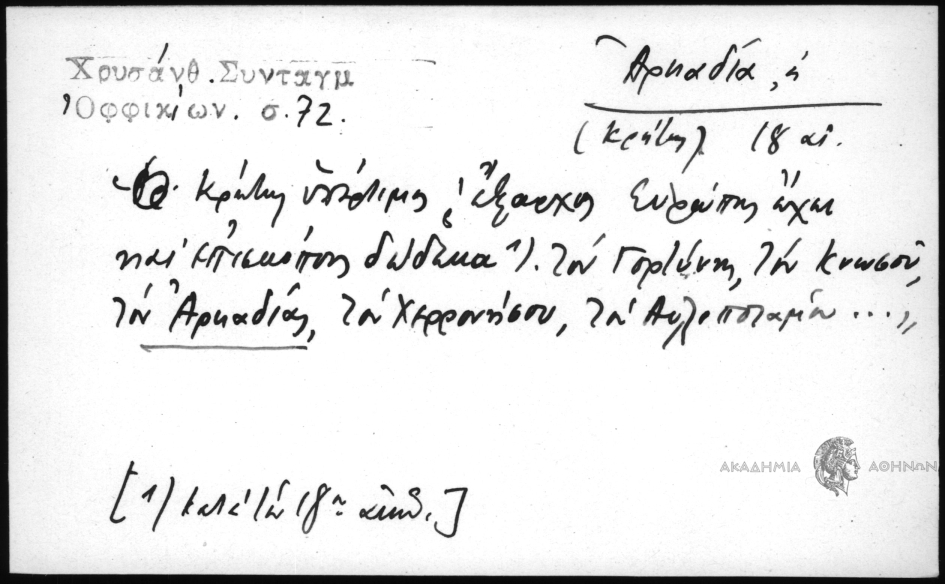 Χρυσάνθ. Συνταγμ
Ὀφφικίων. σ. 72.
Ἀρκαδία, ἡ
(Κρήτης) 18 αἰ.
Κρήτης ὑπέρτιμος ἔξαρχος Εὐρώπης ἔχει
καὶ ἐπισκόπους δώδεκα 1). τὸν Γορτύνης, τὸν Κνωσοῦ,
τὸν Ἀρκαδίας, τὸν Χερρονήσου, τὸν Αὐλοποτάμου ...,,
[1) κατὰ τὸν 18ον αἰῶ.]
ΑΚΑΔΗΜΙΑ ΑΘΗΝΩΝ